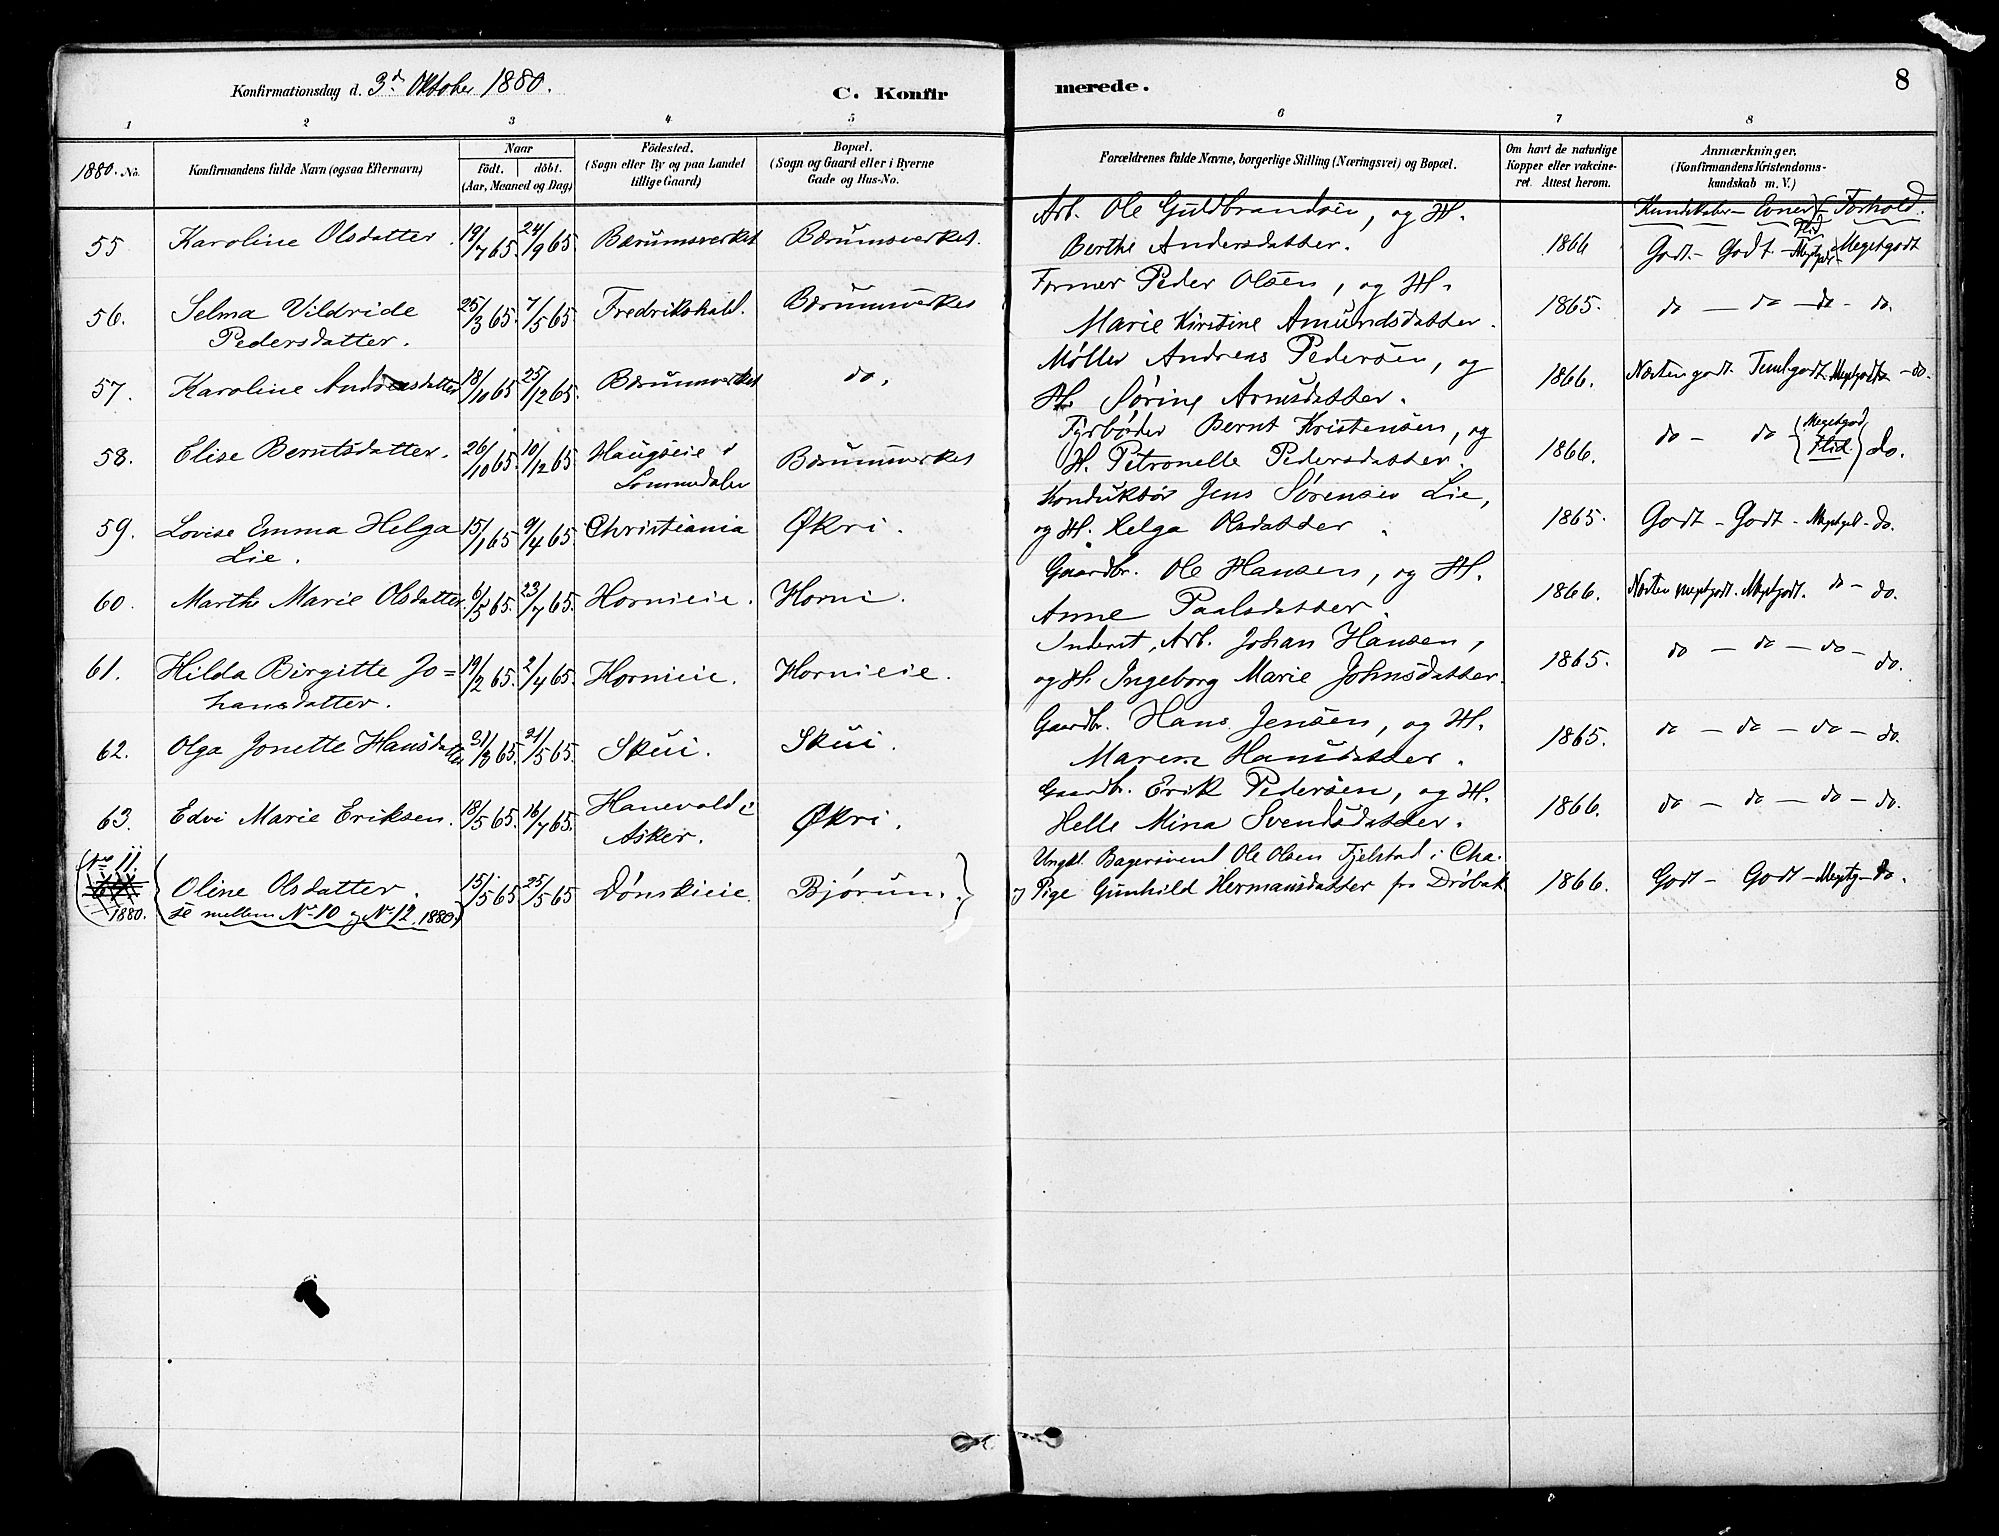 Konfirmationsdag d. 3d Oktober 1880.
C. Konfir
merede.
8
1 2 3 4 5 6 7 8
1880. No.
Konfirmandens fulde Navn (ogsaa Efternavn)
Naar
födt. döbt.
(Aar, Meaned og Dag)
Födested.
(Sogn eller By og paa Landet
tillige Gaard)
Bopæl.
(Sogn og Gaard eller i Byerne
Gade og Hus-No.
Forældrenes fulde Navne, borgerlige Stilling (Næringsvei) og Bopæl.
Om havt de naturlige
Kopper eller vakcine-
ret. Attest herom.
Anmærkninger.
(Konfirmandens Kristendoms-
kundskab m. V.)
Kundskaber - Evner - Flid - Forhold.
55 Karoline Olsdatter. 19/7 65. 24/9 65 Bærumsverket Bærumsverket. Arb. Ole Guldbrandsen, og H.
Berthe Andersdatter. 1866 Godt - Godt - Megetgodt - Megetgodt
56. Selma Vildride 25/3 65. 7/5 65 Fredrikshald. Bærumsverket Former Peder Olsen, og H.
Pedersdatter. Marie Kirstine Amundsdatter. 1865. do - do - do - do.
57. Karoline Andreasdatter 18/10 65 25/12 65. Bærumsverket do. Møller Andreas Pedersen, og
H. Søring Arnesdatter. 1866. Næsten godt. Temlgodt. Megetgodt - do.
58. Elise Berntsdatter. 26/10 65 10/12 65 Haugseie i Bærumsverket Fyrbøder Bernt Kristensen, og
Lommedalen H. Petronelle Pedersdatter. 1866. do - do - {Megetgod Flid.} do.
59. Lovise Emma Helga 15/1 65 9/4 65 Christiania Økri. Konduktør Jens Sørensen Lie,
Lie. og H. Helga Olsdatter. 1865. Godt - Godt - Megetgod - do.
60. Marthe Marie Olsdatter. 6/5 65. 23/7 65. Hornieie. Horni. Gaardbr. Ole Hansen, og H.
Anne Paalsdatter. 1866. Næsten megetgodt. Megetgodt. do - do.
61. Hilda Birgitte Jo= 19/2 65. 2/4 65. Hornieie. Hornieie. Inderst, Arb. Johan Hansen,
hansdatter. og H. Ingeborg Marie Johnsdatter. 1865. do - do - do - do.
62. Olga Jonette Hansdatter 31/3 65. 21/5 65 Skui. Skui. Gaardbr. Hans Jensen, og H.
Maren Hansdatter. 1865. do - do - do - do.
63. Edvi Marie Eriksen. 18/5 65. 16/7 65. Hanevold i Økri. Gaardbr. Erik Pedersen, og H.
Asker. Helle Mina Svendsdatter. 1866. do - do - do - do.
No 11.
1880.
Oline Olsdatter. 15/5 65 25/5 65 Dønskieie. Bjørum. Ungkl. Bagersvend Ole Olsen Fjelstad i Cha.
se mellem No 10 og No 12. 1880. og Pige Gunhild Hermansdatter fra Drøbak 1866. Godt - Godt - Megetg - do.